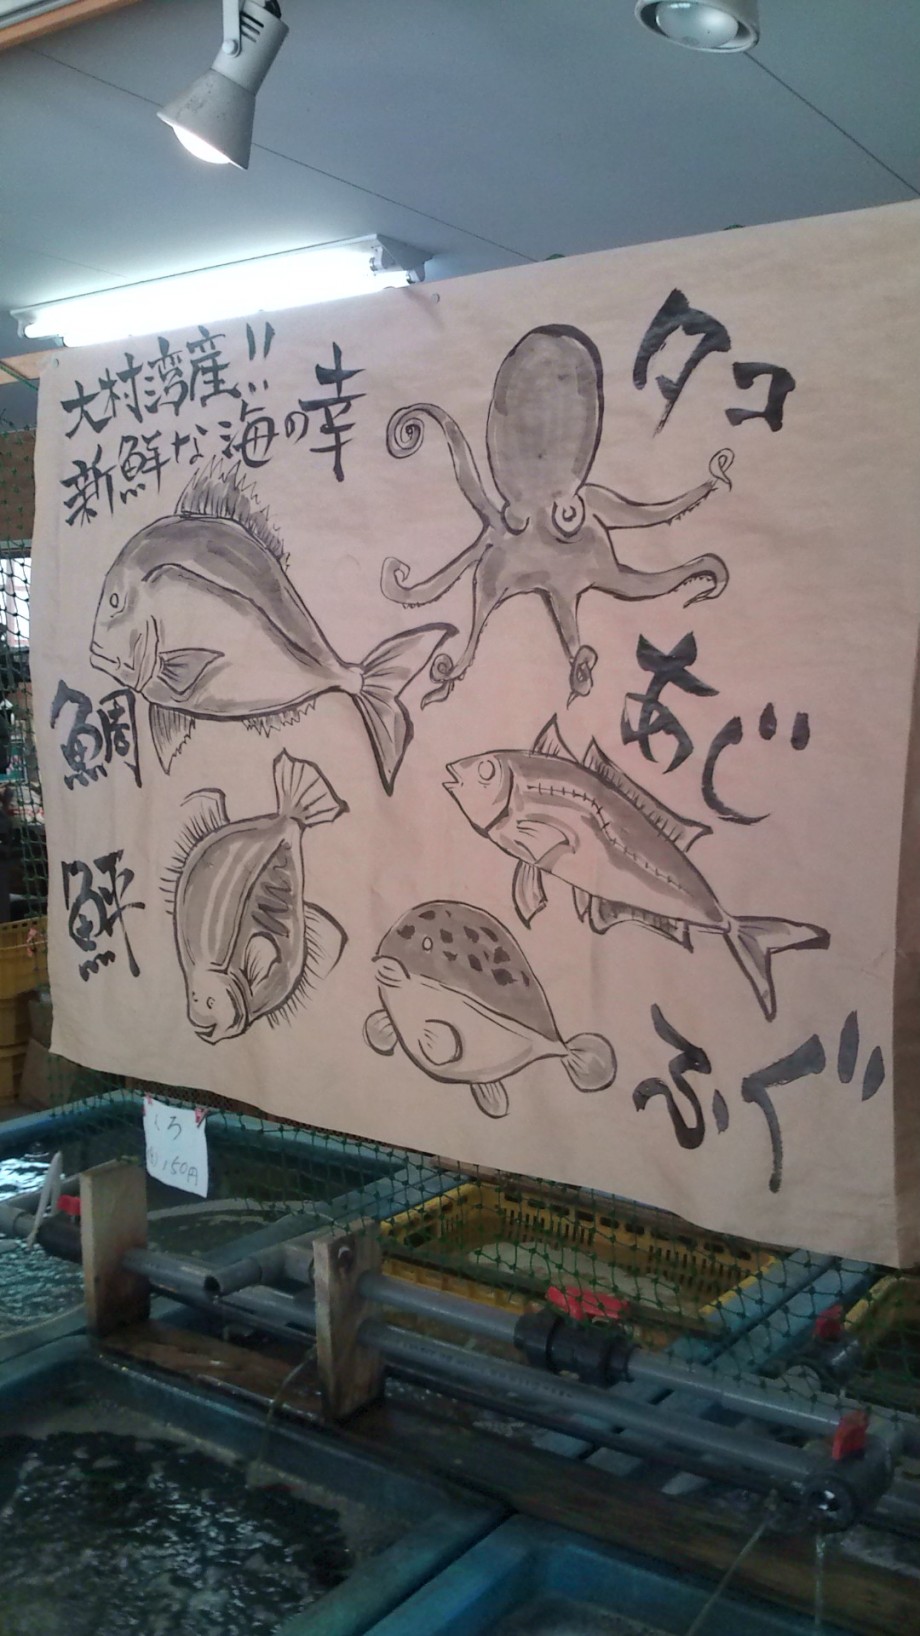 大村湾産!!
新鮮な海の幸
タコ
鯛
あじ
鮃
ふぐ
150円